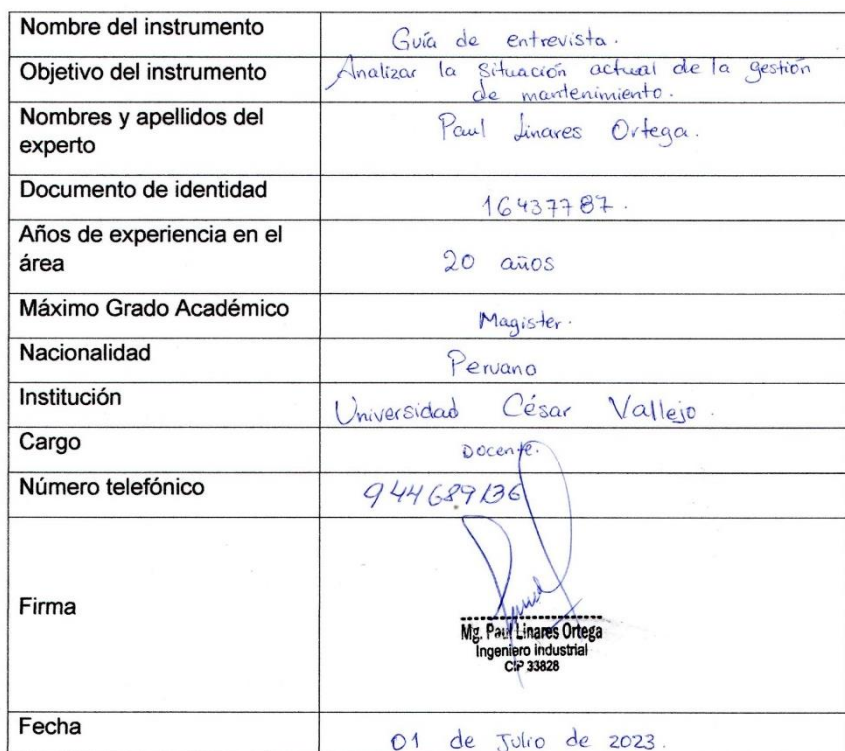 Nombre del instrumento
Guía de entrevista.
Objetivo del instrumento
Analizar la situación actual de la gestión
de mantenimiento.
Nombres y apellidos del
experto
Paul Linares Ortega.
Documento de identidad
16437787.
Años de experiencia en el
área
20 años
Máximo Grado Académico
Magister.
Nacionalidad
Peruano
Institución
Universidad César Vallejo.
Cargo
Docente.
Número telefónico
944689136
Firma
Mg. Paul Linares Ortega
Ingeniero Industrial
CIP 33828
Fecha
01 de Julio de 2023.